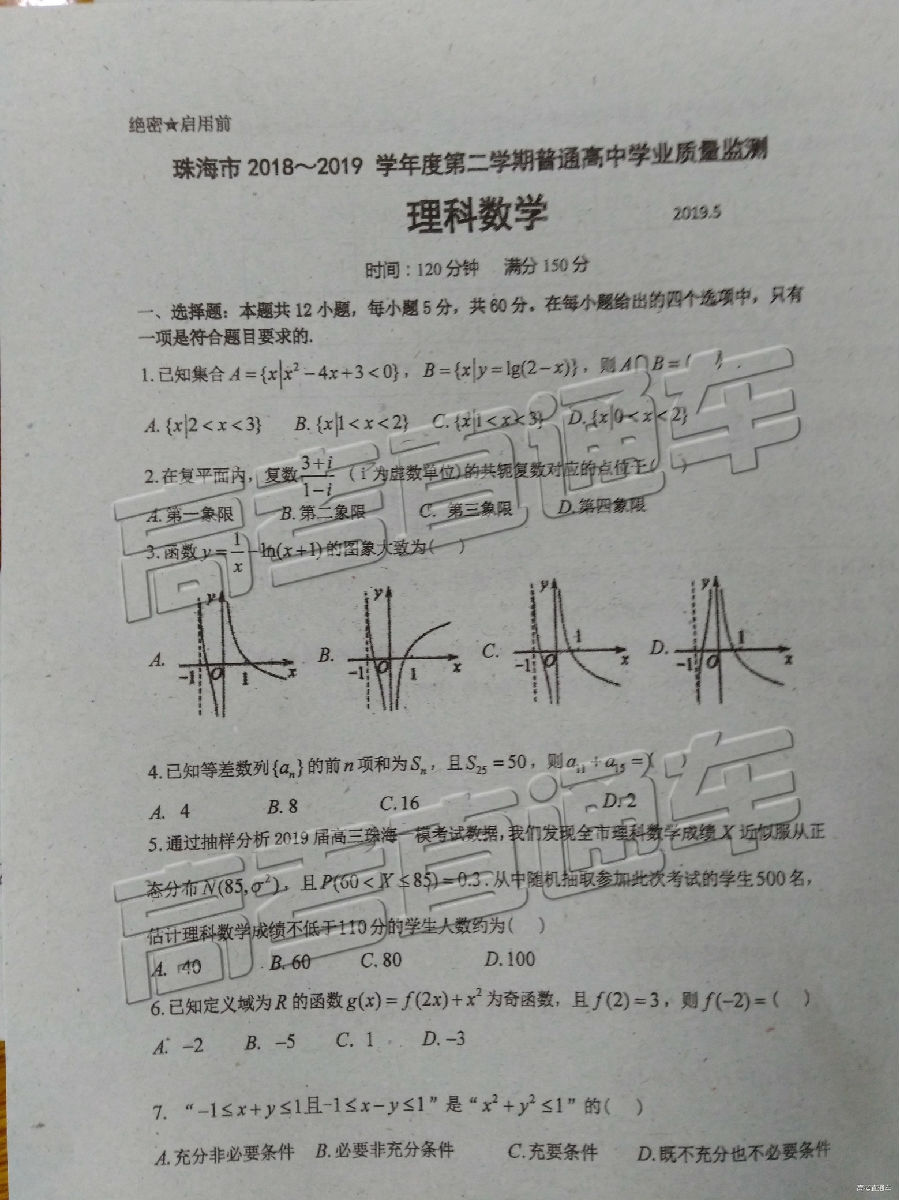 绝密★启用前
珠海市 2018～2019 学年度第二学期普通高中学业质量监测
理科数学 2019.5
时间：120分钟 满分150分
一、选择题：本题共 12 小题，每小题 5 分，共 60 分。在每小题给出的四个选项中，只有
一项是符合题目要求的.
1.已知集合 A={x|x²−4x+3<0}，B={x|y=lg(2−x)}，则 A∩B=( )
A.{x|2<x<3} B.{x|1<x<2} C.{x|1<x<3} D.{x|0<x<2}
2.在复平面内，复数 (3+i)/(1−i) (i 为虚数单位)的共轭复数对应的点位于( )
A.第一象限 B.第二象限 C. 第三象限 D.第四象限
3.函数 y=1/x−ln(x+1) 的图象大致为( )
A. y −1 O 1 x B. y −1 O 1 x C. y −1 O 1 x D. y −1 O 1 x
4.已知等差数列{aₙ}的前 n 项和为 Sₙ，且 S₂₅=50，则 a₁₁+a₁₅=( )
A. 4 B. 8 C. 16 D. 2
5.通过抽样分析 2019 届高三珠海一模考试数据，我们发现全市理科数学成绩 X 近似服从正
态分布 N(85,σ²)，且 P(60<X≤85)=0.3．从中随机抽取参加此次考试的学生 500 名，
估计理科数学成绩不低于 110 分的学生人数约为( )
A. 40 B. 60 C. 80 D. 100
6.已知定义域为 R 的函数 g(x)=f(2x)+x² 为奇函数，且 f(2)=3，则 f(−2)=( )
A. −2 B. −5 C. 1 D. −3
7. “−1≤x+y≤1且−1≤x−y≤1”是“x²+y²≤1”的( )
A.充分非必要条件 B.必要非充分条件 C.充要条件 D.既不充分也不必要条件
高考直通车
高考直通车
高考直通车